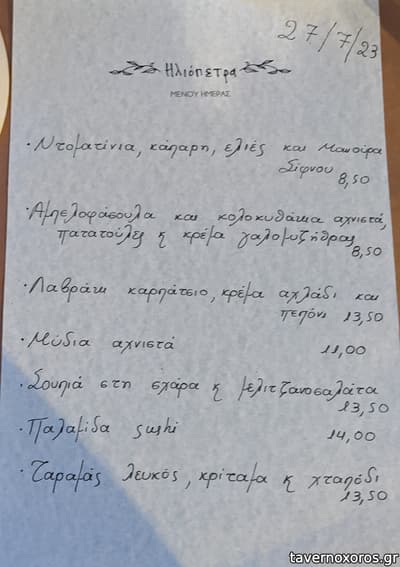 27/7/23
Ηλιόπετρα
ΜΕΝΟΥ ΗΜΕΡΑΣ
· Ντοματίνια, κάπαρη, ελιές και Μανούρα
Σίφνου
8,50
· Αμπελοφάσουλα και κολοκυθάκια αχνιστά,
πατατούλες κ κρέμα γαλομυζήθρας
8,50
· Λαβράκι καρπάτσιο, κρέμα αχλάδι και
πεπόνι 13,50
· Μύδια αχνιστά 11,00
· Σουπιά στη σχάρα κ μελιτζανοσαλάτα
13,50
· Παλαμίδα sushi 14,00
· Ταραμάς λευκός, κρίταμα κ χταπόδι
13,50
tavernoxoros.gr